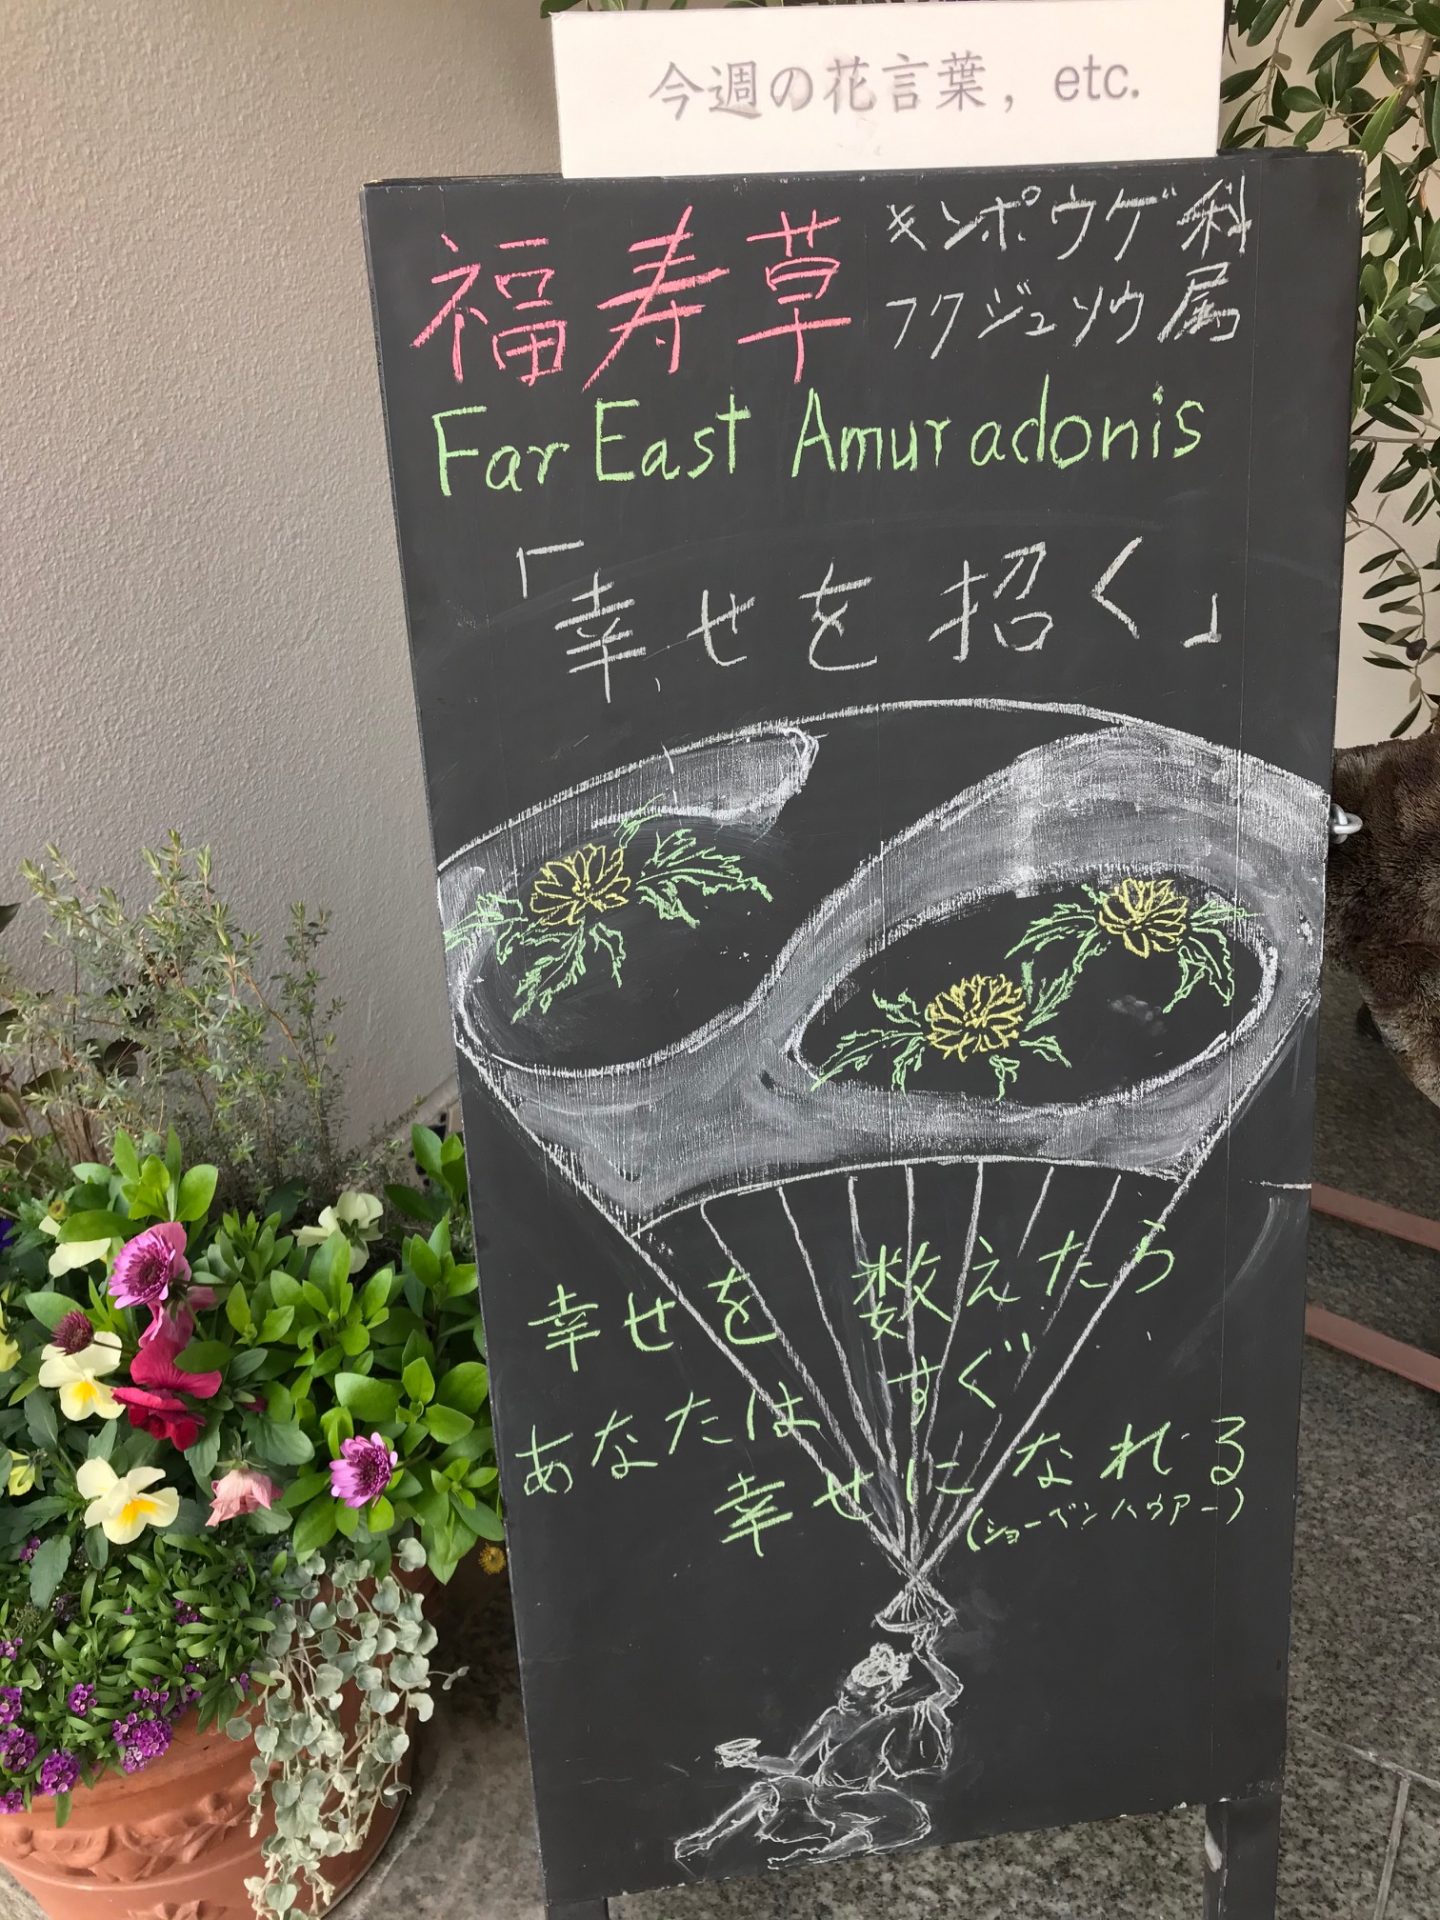 今週の花言葉, etc.
福寿草
キンポウゲ科
フクジュソウ属
Far East Amur adonis
「幸せを招く」
幸せを数えたら
あなたはすぐ
幸せになれる
(ショーペンハウアー)